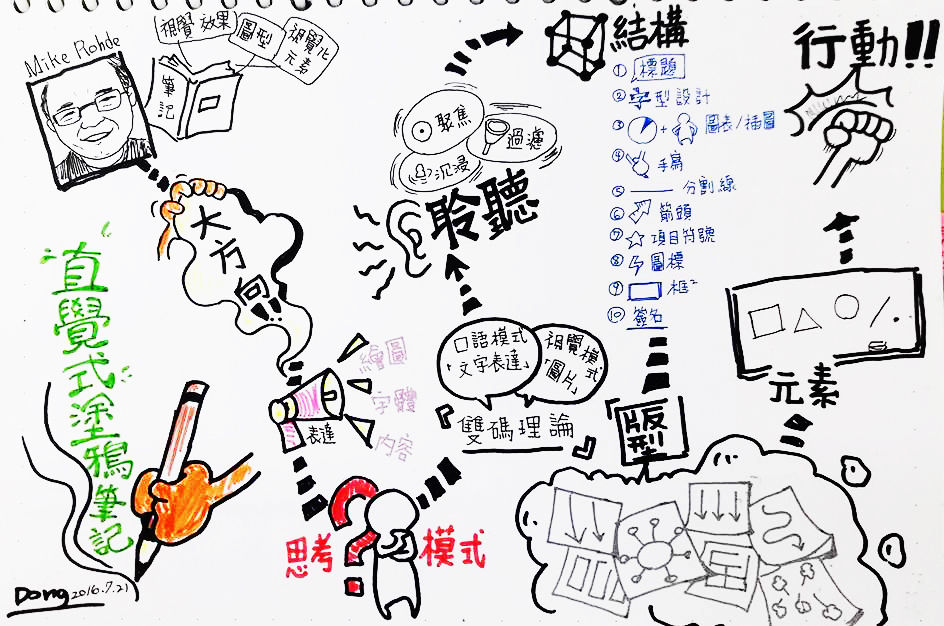 Mike Rohde
視覺效果
圖型
視覺化
元素
筆記
大方向!!
"直覺式塗鴉筆記"
Dong 2016.7.21
表達
繪圖
字體
內容
思考
模式
?
『雙碼理論』
口語模式
「文字表達」
視覺模式
「圖片」
聆聽
聚焦
過濾
沉浸
結構
① 標題
② 字型設計
③ + 圖表/插圖
④ 手寫
⑤ 分割線
⑥ 箭頭
⑦ 項目符號
⑧ 圖標
⑨ 框²
⑩ 簽名
「版型」
元素
行動!!